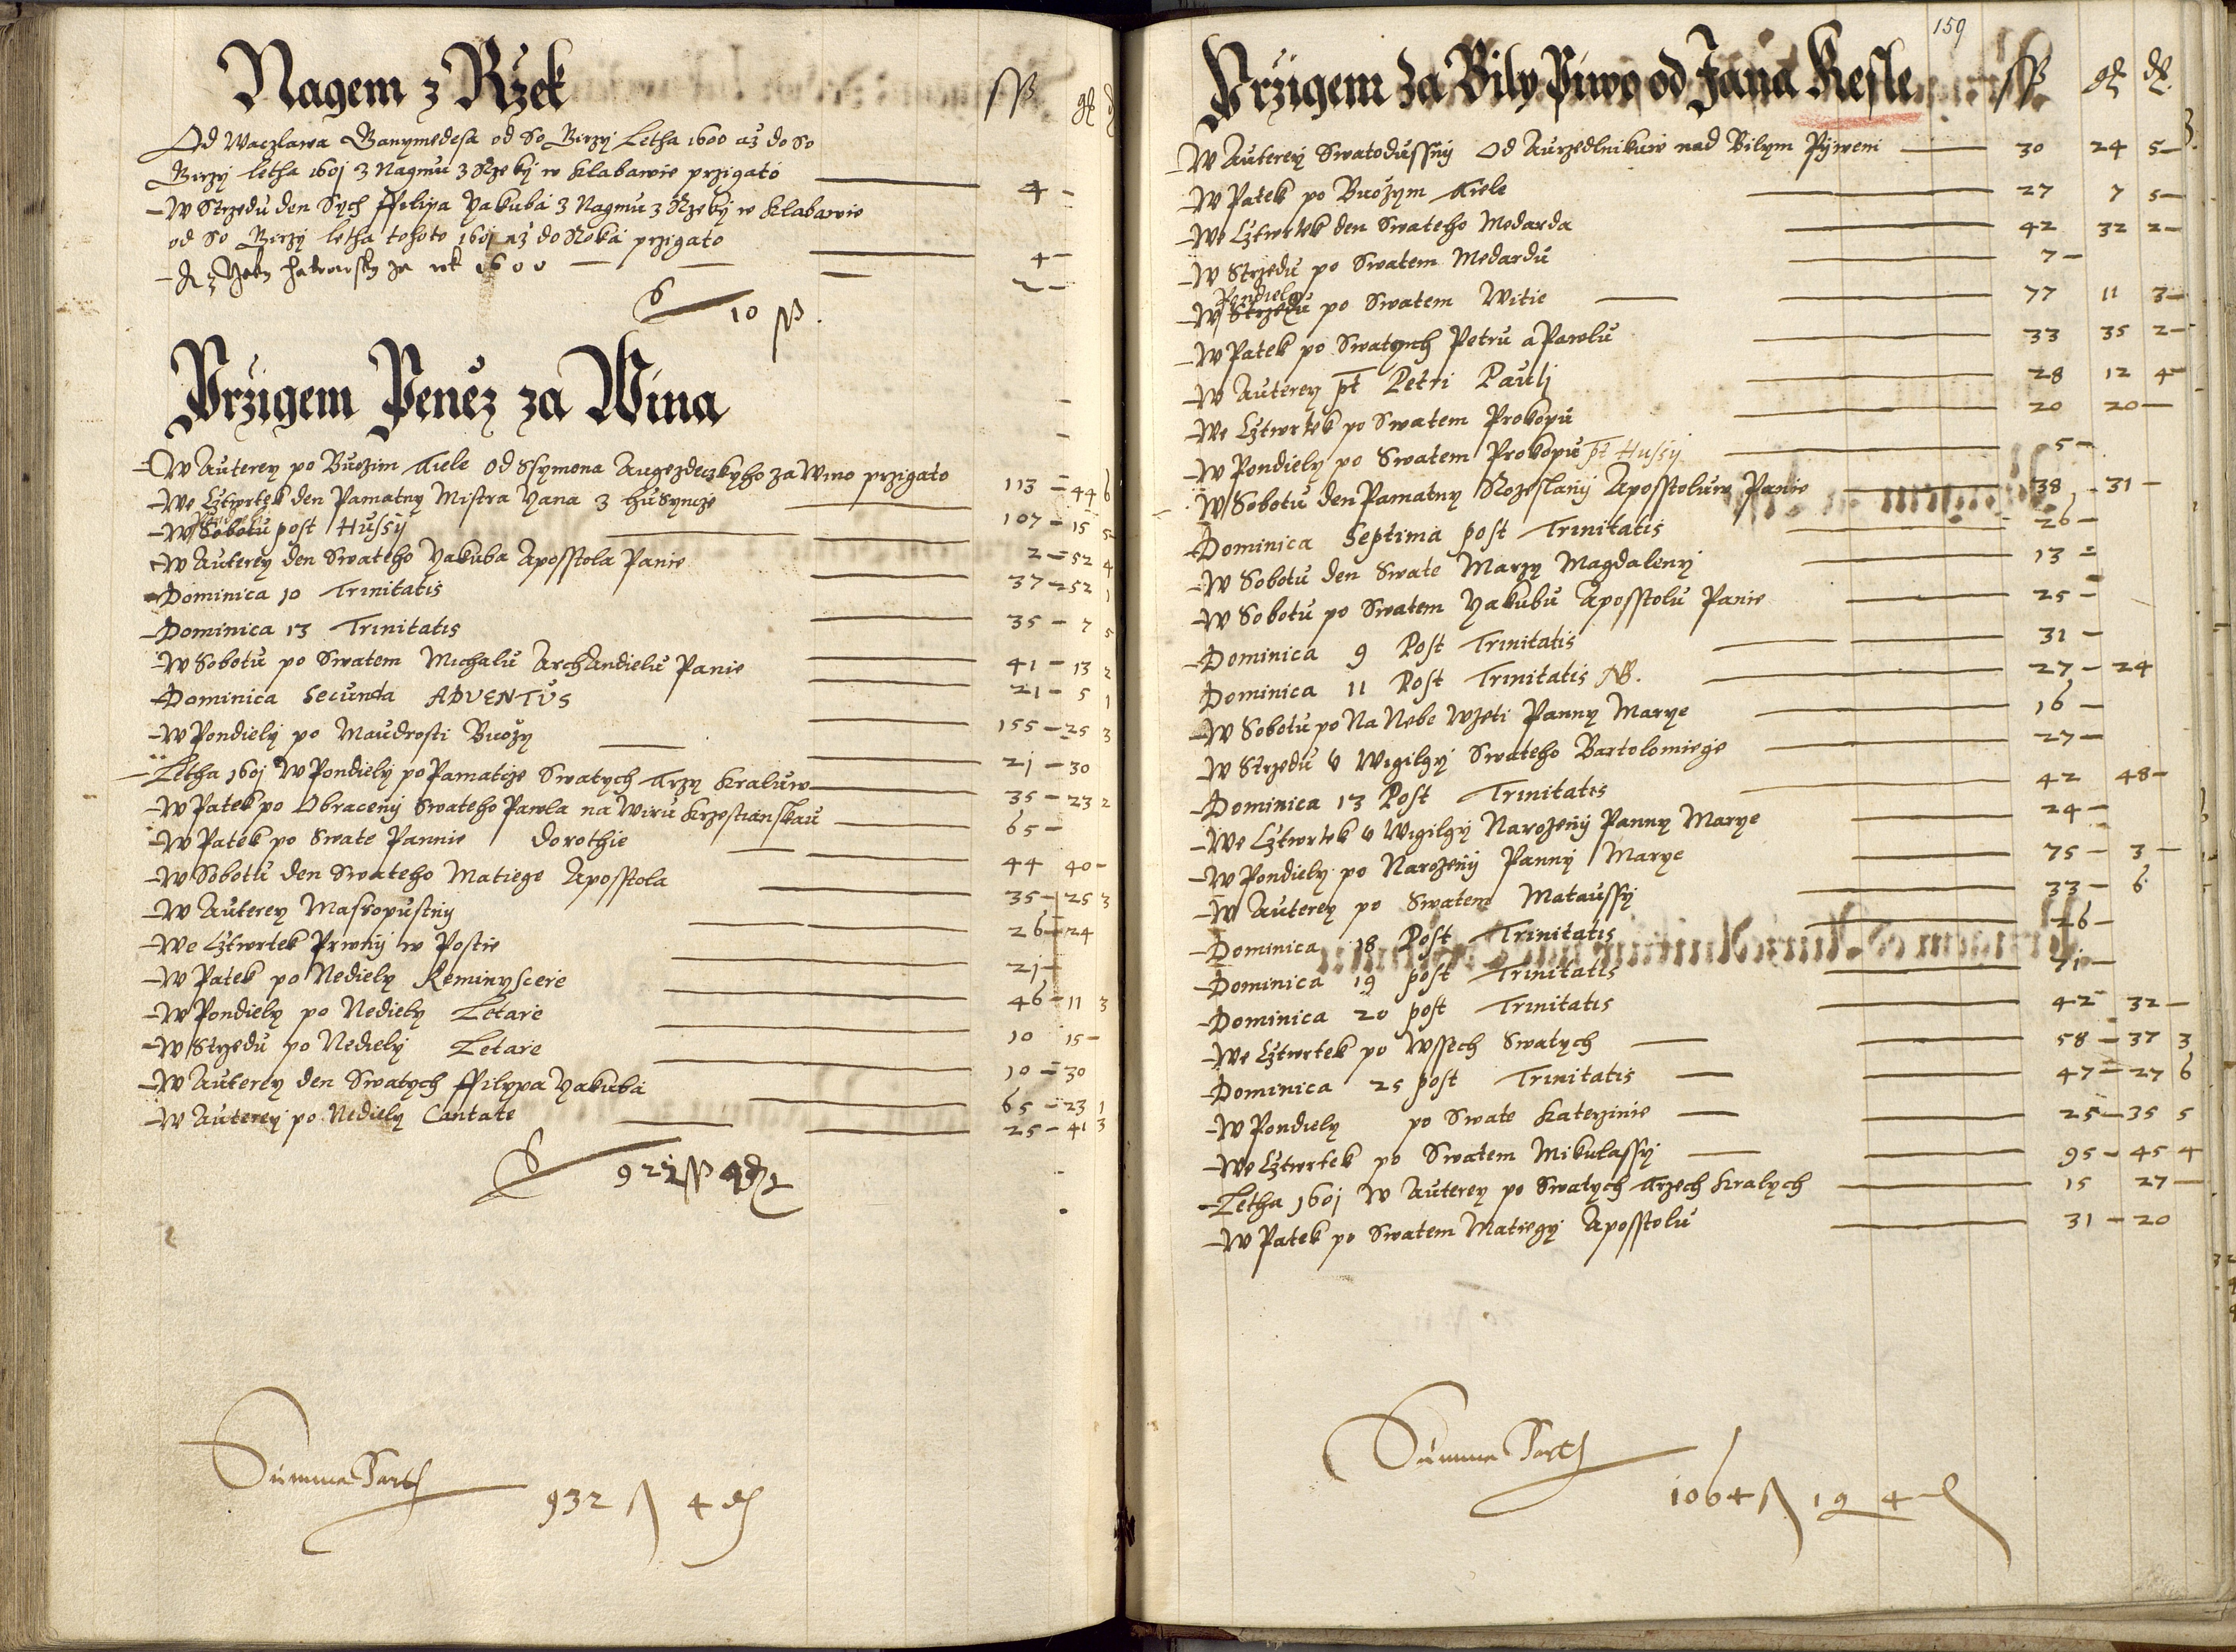 Nagem z Rzek
ſſ gr d
Od Waczlawa Ganymedesa od So Girzy Letha 1600 až do So
Girzy letha 1601 z Nagmu z Rzeky w Klabawie przigato 4 -
W Strzedu den Sych Ffilipa Yakuba z Nagmu z Rzeky w Klabawie
od So Girzy letha tohoto 1601 až do Roka przigato 4 -
za rok 1600 2 -
10 ſſ.
Przigem Peněz za Wina
W Auterey po Buožim Tiele od Ssymona Augezdeczkyho za Wino przigato 113 - 44 6
We Cztwrtek den Pamatny Mistra Yana z Husyncze 107 - 15 5
W Sobotu post Hussy 2 - 52 4
W Auterey den Swateho Yakuba Aposstola Panie 37 - 52 1
Dominica 10 Trinitatis 35 - 7 5
Dominica 13 Trinitatis
W Sobotu po Swatem Michalu ArchAndielu Panie 41 - 13 2
Dominica Secunda ADVENTUS 21 - 5 1
W Pondiely po Maudrosti Buožy 155 - 25 3
Letha 1601 W Pondiely po Pamatcze Swatych Trzy Kraluw 21 - 30
W Patek po Obraceny Swateho Pawla na Wiru Krzestianskau 35 - 23 2
W Patek po Swate Pannie Dorothie 65 -
W Sobotu den Swateho Matiege Aposstola 44 40 -
W Auterey Masropustny 35 - 25 3
We Cztwrtek Prwny w Postie 26 - 24
W Patek po Nediely Reminyscere 21 -
W Pondiely po Nediely Letare 46 - 11 3
W Strzedu po Nediely Letare 10 15 -
W Auterey den Swatych Ffilyppa Yakuba 10 - 30
W Auterey po Nediely Cantate 65 - 23 1
25 - 41 3
922 ſſ 4 d
Summa Parts 932 ſſ 4 d
159
Przigem Za Bily Piwo od Jana Kesle ſſ gr d.
W Auterey Swatodussny Od Aurzedlnikuw nad Bilym Pijwem 30 24 5 -
W Patek po Buožym Tiele 27 7 5 -
We Cztwrtek den Swateho Medarda 42 32 2 -
W Strzedu po Swatem Medardu 7 -
Pondiely
W Strzedu po Swatem Witie 77 11 3 -
W Patek po Swatych Petru a Pawlu 33 35 2 -
W Auterey pt Petri Pauli 28 12 4 -
We Cztwrtek po Swatem Prokopu 20 20 -
W Pondiely po Swatem Prokopu pt Hussy 5 -
W Sobotu den Pamatny Rozeslany Aposstoluw Panie 38 - 31 -
Dominica Septima post Trinitatis 26 -
W Sobotu den Swate Marzy Magdaleny 13 -
W Sobotu po Swatem Yakubu Aposstolu Panie 25 -
Dominica 9 Post Trinitatis 31 -
Dominica 11 Post Trinitatis NB. 27 - 24
W Sobotu po Na Nebe Wzeti Panny Marye 16 -
W Strzedu v Wigilgy Swateho Bartolomiege 27 -
Dominica 13 Post Trinitatis 42 48 -
We Cztwrtek v Wigilgy Narozeny Panny Marye 24 -
W Pondiely po Narozeny Panny Marye 75 - 3 -
W Auterey po Swatem Mataussy 33 - 6
Dominica 18 Post Trinitatis 26 -
Dominica 19 post Trinitatis 71 -
Dominica 20 post Trinitatis 42 32 -
We Cztwrtek po Wssech Swatych 58 - 37 3
Dominica 25 post Trinitatis 47 - 27 6
W Pondiely po Swate Katerzinie 25 - 35 5
We Cztwrtek po Swatem Mikulassy 95 - 45 4
Letha 1601 W Auterey po Swatych Trzech Kralych 15 27 -
W Patek po Swatem Matiegy Aposstolu 31 - 20
Summa Parts 1064 ſſ 19 4 d